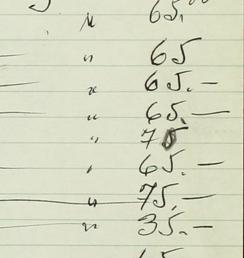 " 65.00
" 65
" 65.—
" 65.—
" 75
" 65.—
" 75.—
" 35.—